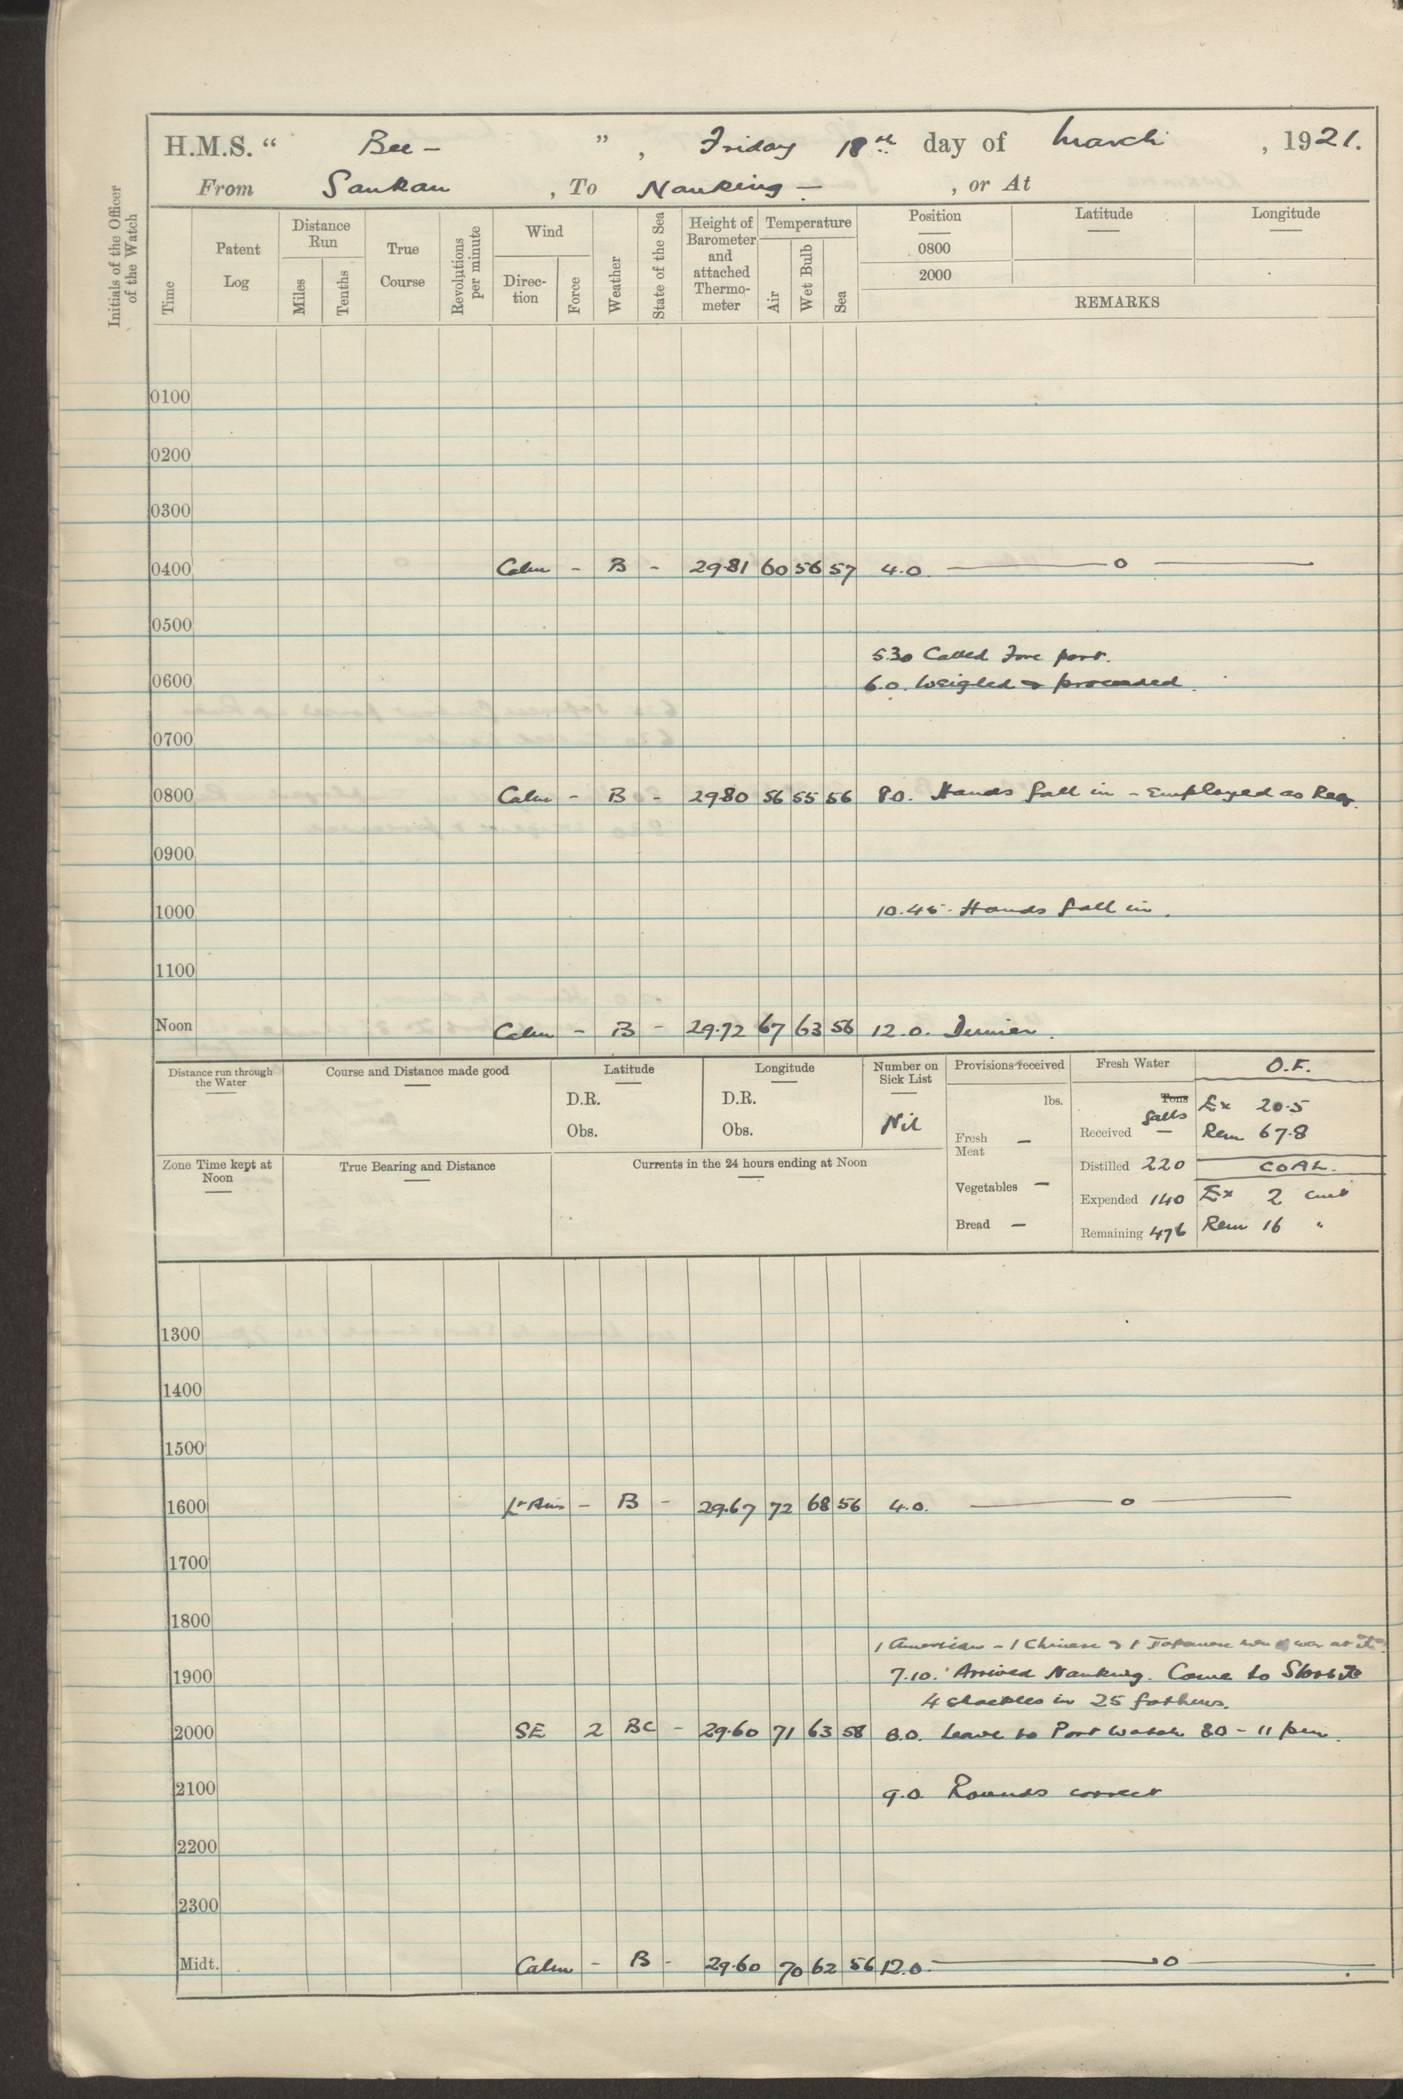 H.M.S. “ Bee — ” , Friday 18th day of March , 1921.
From Sankau , To Nanking — , or At
Initials of the Officer of the Watch
Time
Patent Log
Distance Run
Miles
Tenths
True Course
Revolutions per minute
Wind
Direc-tion
Force
Weather
State of the Sea
Height of Barometer and attached Thermo-meter
Temperature
Air
Wet Bulb
Sea
Position
0800
2000
Latitude
Longitude
REMARKS
0100
0200
0300
0400 Calm - B - 29.81 60 56 57 4.0. —— o ——
0500
5.30 Called Fore part.
0600 6.0. Weighed & proceeded.
0700
0800 Calm - B - 29.80 56 55 56 8.0. Hands fall in - Employed as Req.
0900
1000 10.45. Hands fall in.
1100
Noon Calm - B - 29.72 67 63 56 12.0. Dinner.
Distance run through the Water
Course and Distance made good
Latitude
D.R.
Obs.
Longitude
D.R.
Obs.
Number on Sick List
Nil
Provisions received
lbs.
Fresh Meat —
Vegetables —
Bread —
Fresh Water
Tons galls
Received —
Distilled 220
Expended 140
Remaining 476
O.F.
Ex 20.5
Rem 67.8
COAL.
Ex 2 cwt
Rem 16 "
Zone Time kept at Noon
True Bearing and Distance
Currents in the 24 hours ending at Noon
1300
1400
1500
1600 Lt Airs - B - 29.67 72 68 56 4.0. —— o ——
1700
1800
1 American - 1 Chinese & 1 Japanese war at
1900 7.10. Arrived Nanking. Came to Stbd
4 shackles in 25 fathoms.
2000 SE 2 BC - 29.60 71 63 58 8.0. Leave to Port Watch 8.0 - 11 pm.
2100 9.0 Rounds correct
2200
2300
Midt. Calm - B - 29.60 70 62 56 12.0. —— o ——